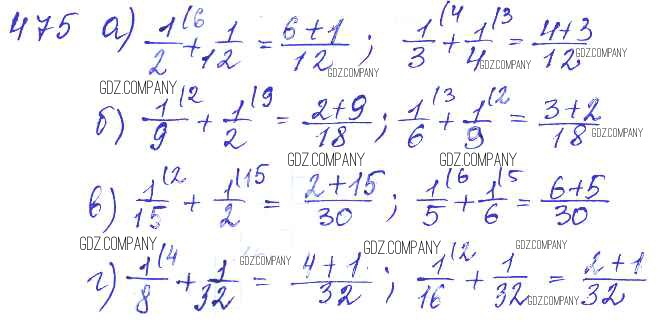 475 а) 1/2 (6 + 1/12 = (6+1)/12 ; 1/3 (4 + 1/4 (3 = (4+3)/12
GDZ.COMPANY GDZ.COMPANY GDZ.COMPANY GDZ.COMPANY
б) 1/9 (2 + 1/2 (9 = (2+9)/18 ; 1/6 (3 + 1/9 (2 = (3+2)/18
GDZ.COMPANY GDZ.COMPANY GDZ.COMPANY
в) 1/15 (2 + 1/2 (15 = (2+15)/30 ; 1/5 (6 + 1/6 (5 = (6+5)/30
GDZ.COMPANY GDZ.COMPANY GDZ.COMPANY GDZ.COMPANY
г) 1/8 (4 + 1/32 = (4+1)/32 ; 1/16 (2 + 1/32 = (2+1)/32
GDZ.COMPANY